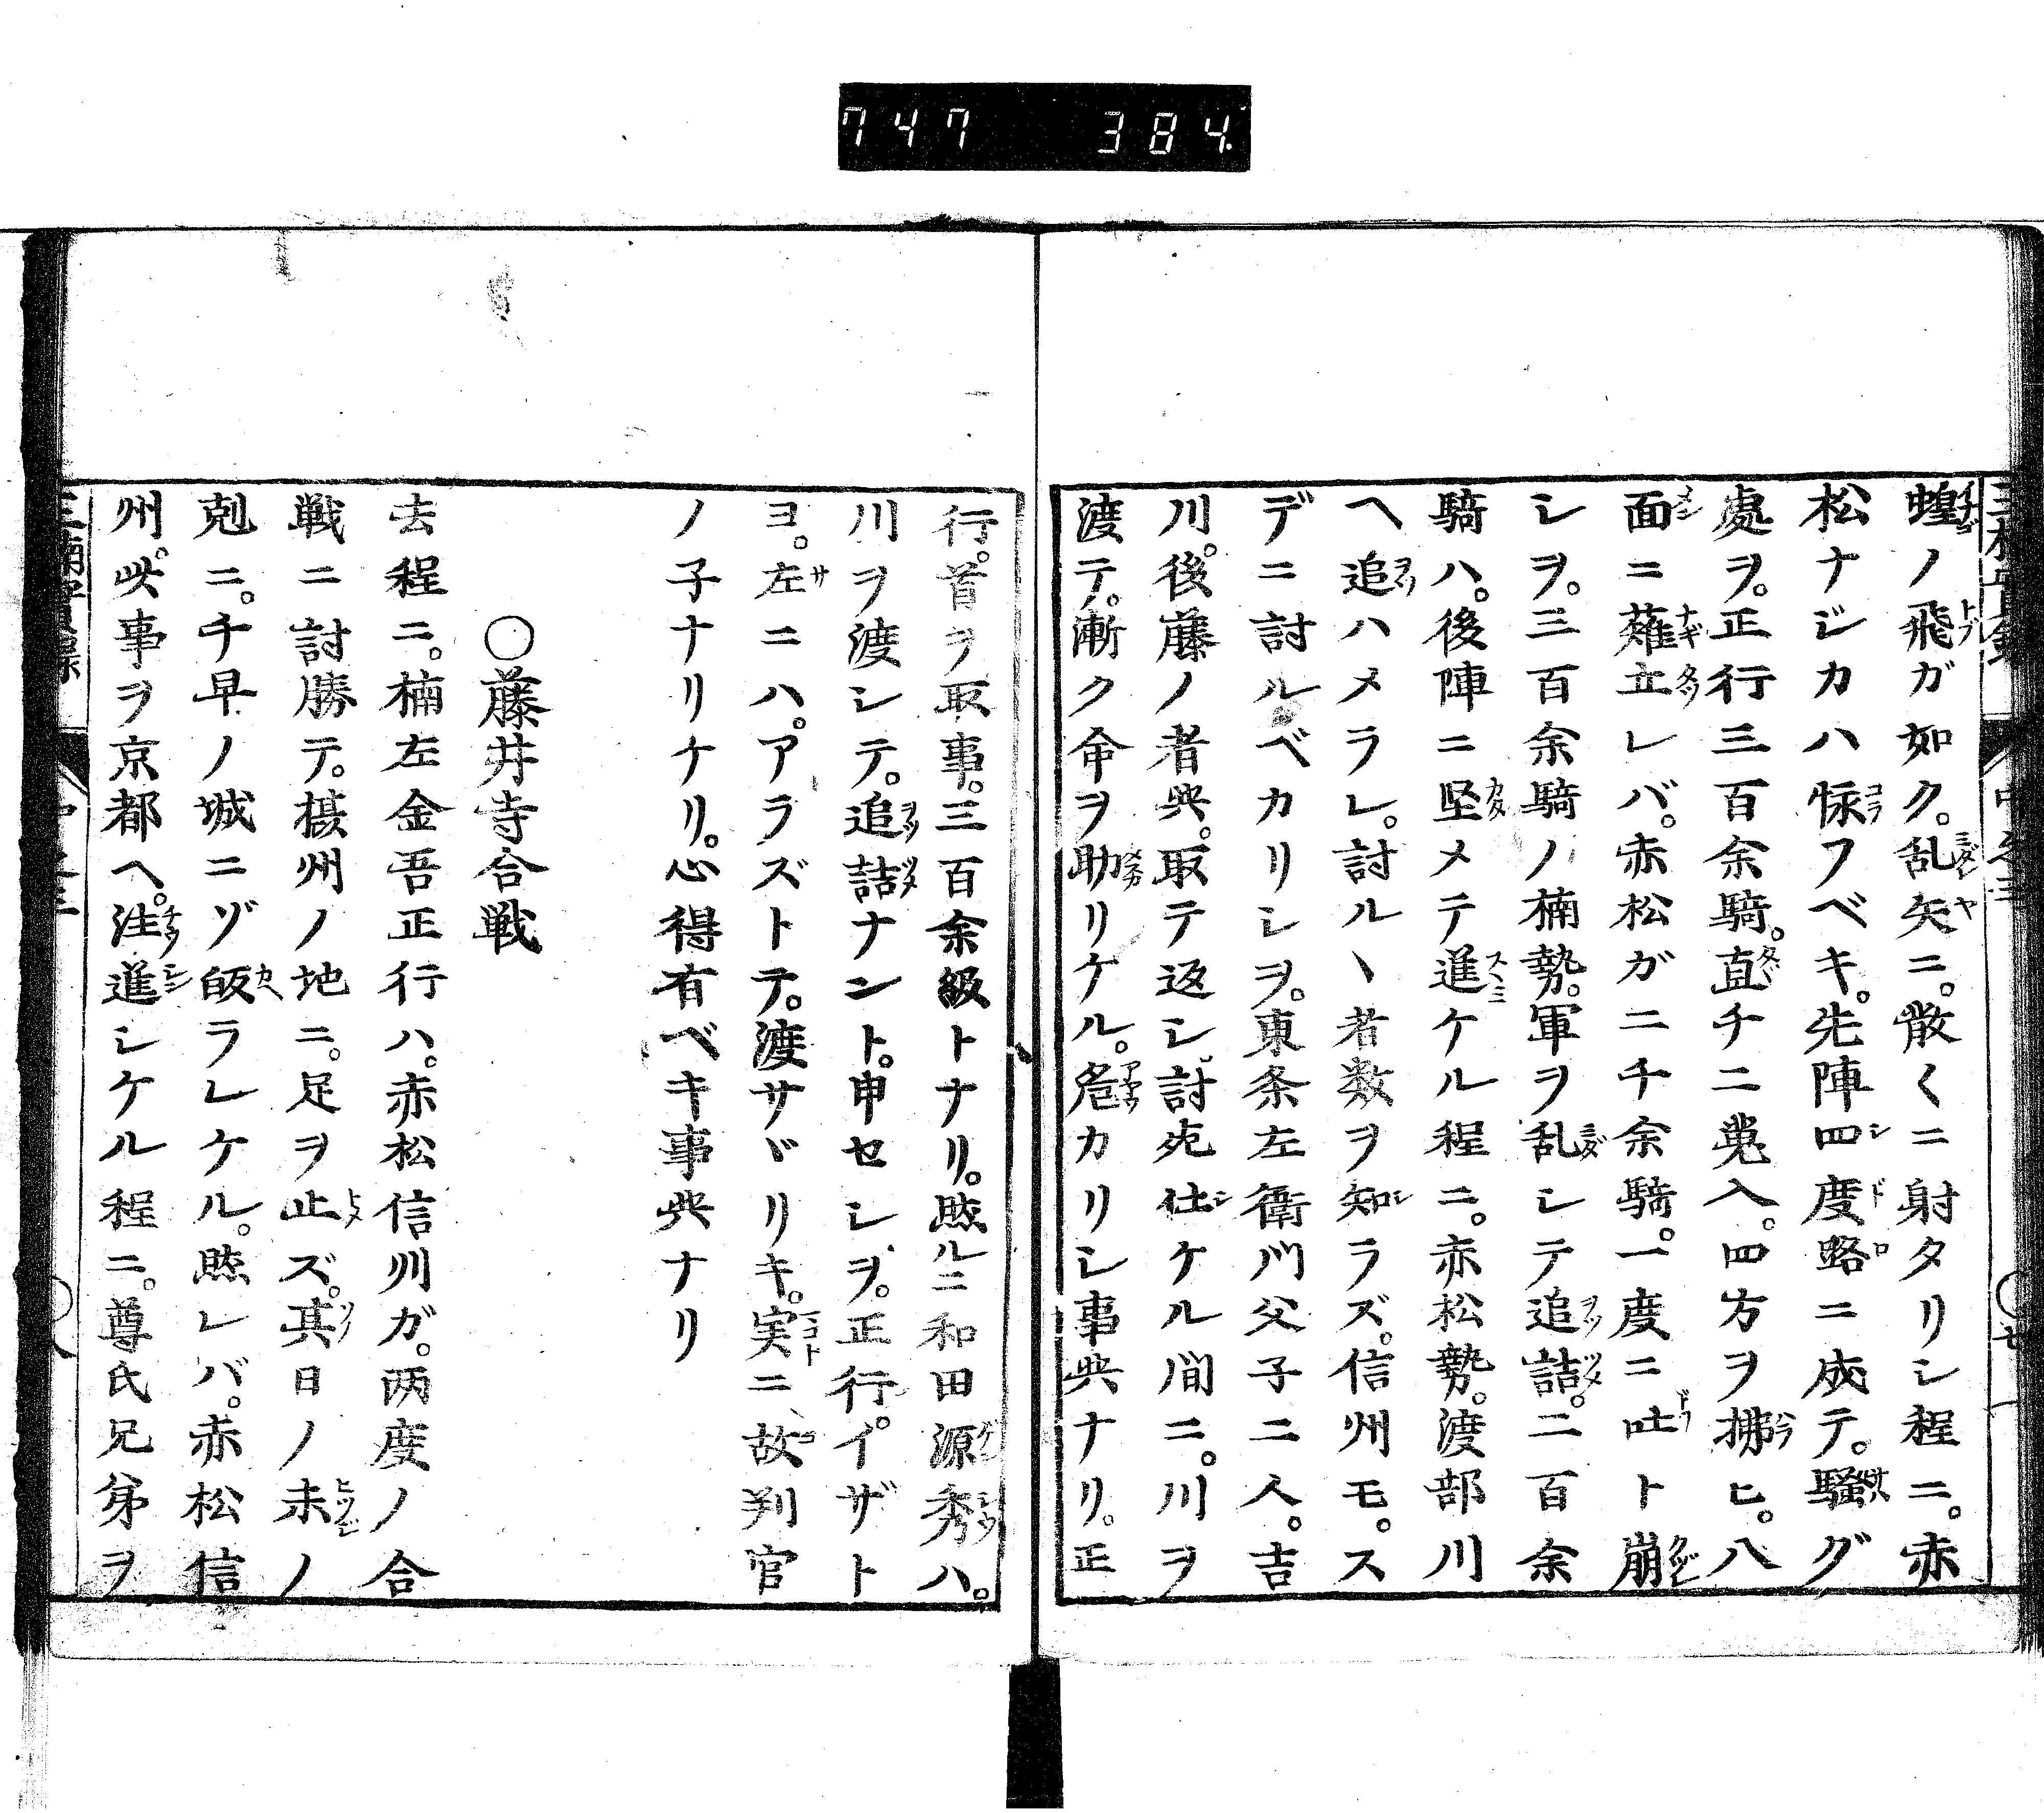 747 384
蝗ノ飛ガ如ク。乱矢ニ。散〱ニ射タリシ程ニ。赤
松ナジカハ怺フベキ。先陣四度路ニ成テ。騒グ
處ヲ。正行三百余騎。直チニ蒐入。四方ヲ拂ヒ。八
面ニ薙立レバ。赤松ガ二千余騎。一度ニ吐ト崩
レヲ。三百余騎ノ楠勢。軍ヲ乱シテ追詰。二百余
騎ハ。後陣ニ堅メテ進ケル程ニ。赤松勢。渡部川
ヘ追ハメラレ。討ルヽ者数ヲ知ラズ。信州モ。ス
デニ討ルベカリシヲ。東条左衛門父子二人。吉
川。後藤ノ者共。取テ返シ討死仕ケル間ニ。川ヲ
渡テ。漸ク命ヲ助リケル。危カリシ事共ナリ。正
行。首ヲ取事。三百余級トナリ。然ルニ和田源秀ハ。
川ヲ渡シテ。追詰ナント。申セシヲ。正行。イザト
ヨ。左ニハ。アラズトテ。渡サヾリキ。実ニ故判官
ノ子ナリケリ。心得有ベキ事共ナリ
〇藤井寺合戦
去程ニ。楠左金吾正行ハ。赤松信州ガ。両度ノ合
戦ニ討勝テ。摂州ノ地ニ。足ヲ止ズ。其日ノ未ノ
剋ニ。千早ノ城ニゾ皈ラレケル。然レバ。赤松信
州。此事ヲ京都ヘ。注進シケル程ニ。尊氏兄弟ヲ